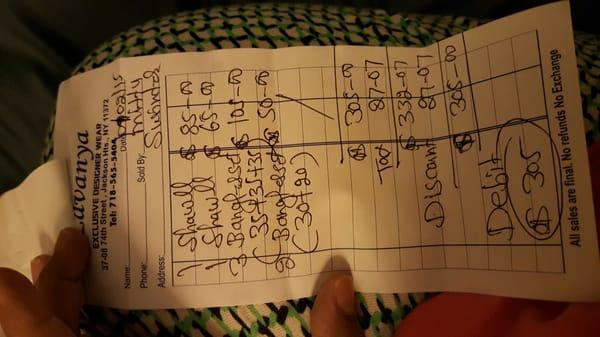 Lavanya
EXCLUSIVE DESIGNER WEAR
37-08 74th Street, Jackson Hts., NY 11372
Tel: 718-565-5404
Name:
Date:
Phone:
Sold By:
Address:
1 Shawll $ 85-00
1 Shawll $ 65-00
3 $ 105-00
(35+35+35)
2 $ 50-00
(30+20)
$ 305-00
Tax 27-07
$ 332-07
Discount 27-07
$ 305-00
Debit $ 305
All sales are final. No refunds No Exchange